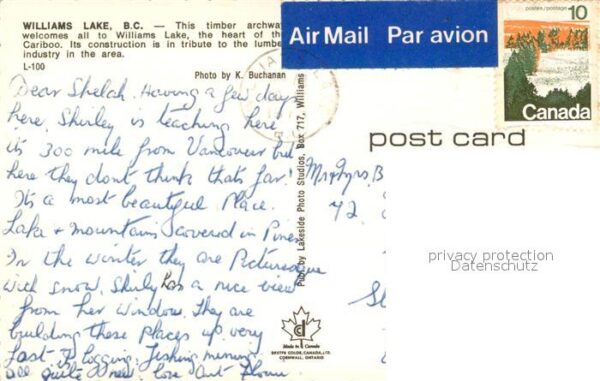 WILLIAMS LAKE, B.C. — This timber archway
welcomes all to Williams Lake, the heart of th
Cariboo. Its construction is in tribute to the lumbe
industry in the area.
L-100
Photo by K. Buchanan
Dear Shelah. Having a few days
here, Shirley is teaching here
its 300 mile from Vancouver but
here they dont think thats far!
Its a most beautiful Place.
Lake + mountains covered in Pines
In the winter they are Picturesque
with snow, Shirly has a nice view
from her window. They are
building these places up very
fast, logging, fishing mining
all quite new love Aunt
Publ. by Lakeside Photo Studios, Box 717, Williams
Made in Canada
DEXTER COLOR, CANADA, LTD.
CORNWALL, ONTARIO
Air Mail Par avion
postes/postage 10
Canada
post card
Mr & Mrs B
42
privacy protection
Datenschutz